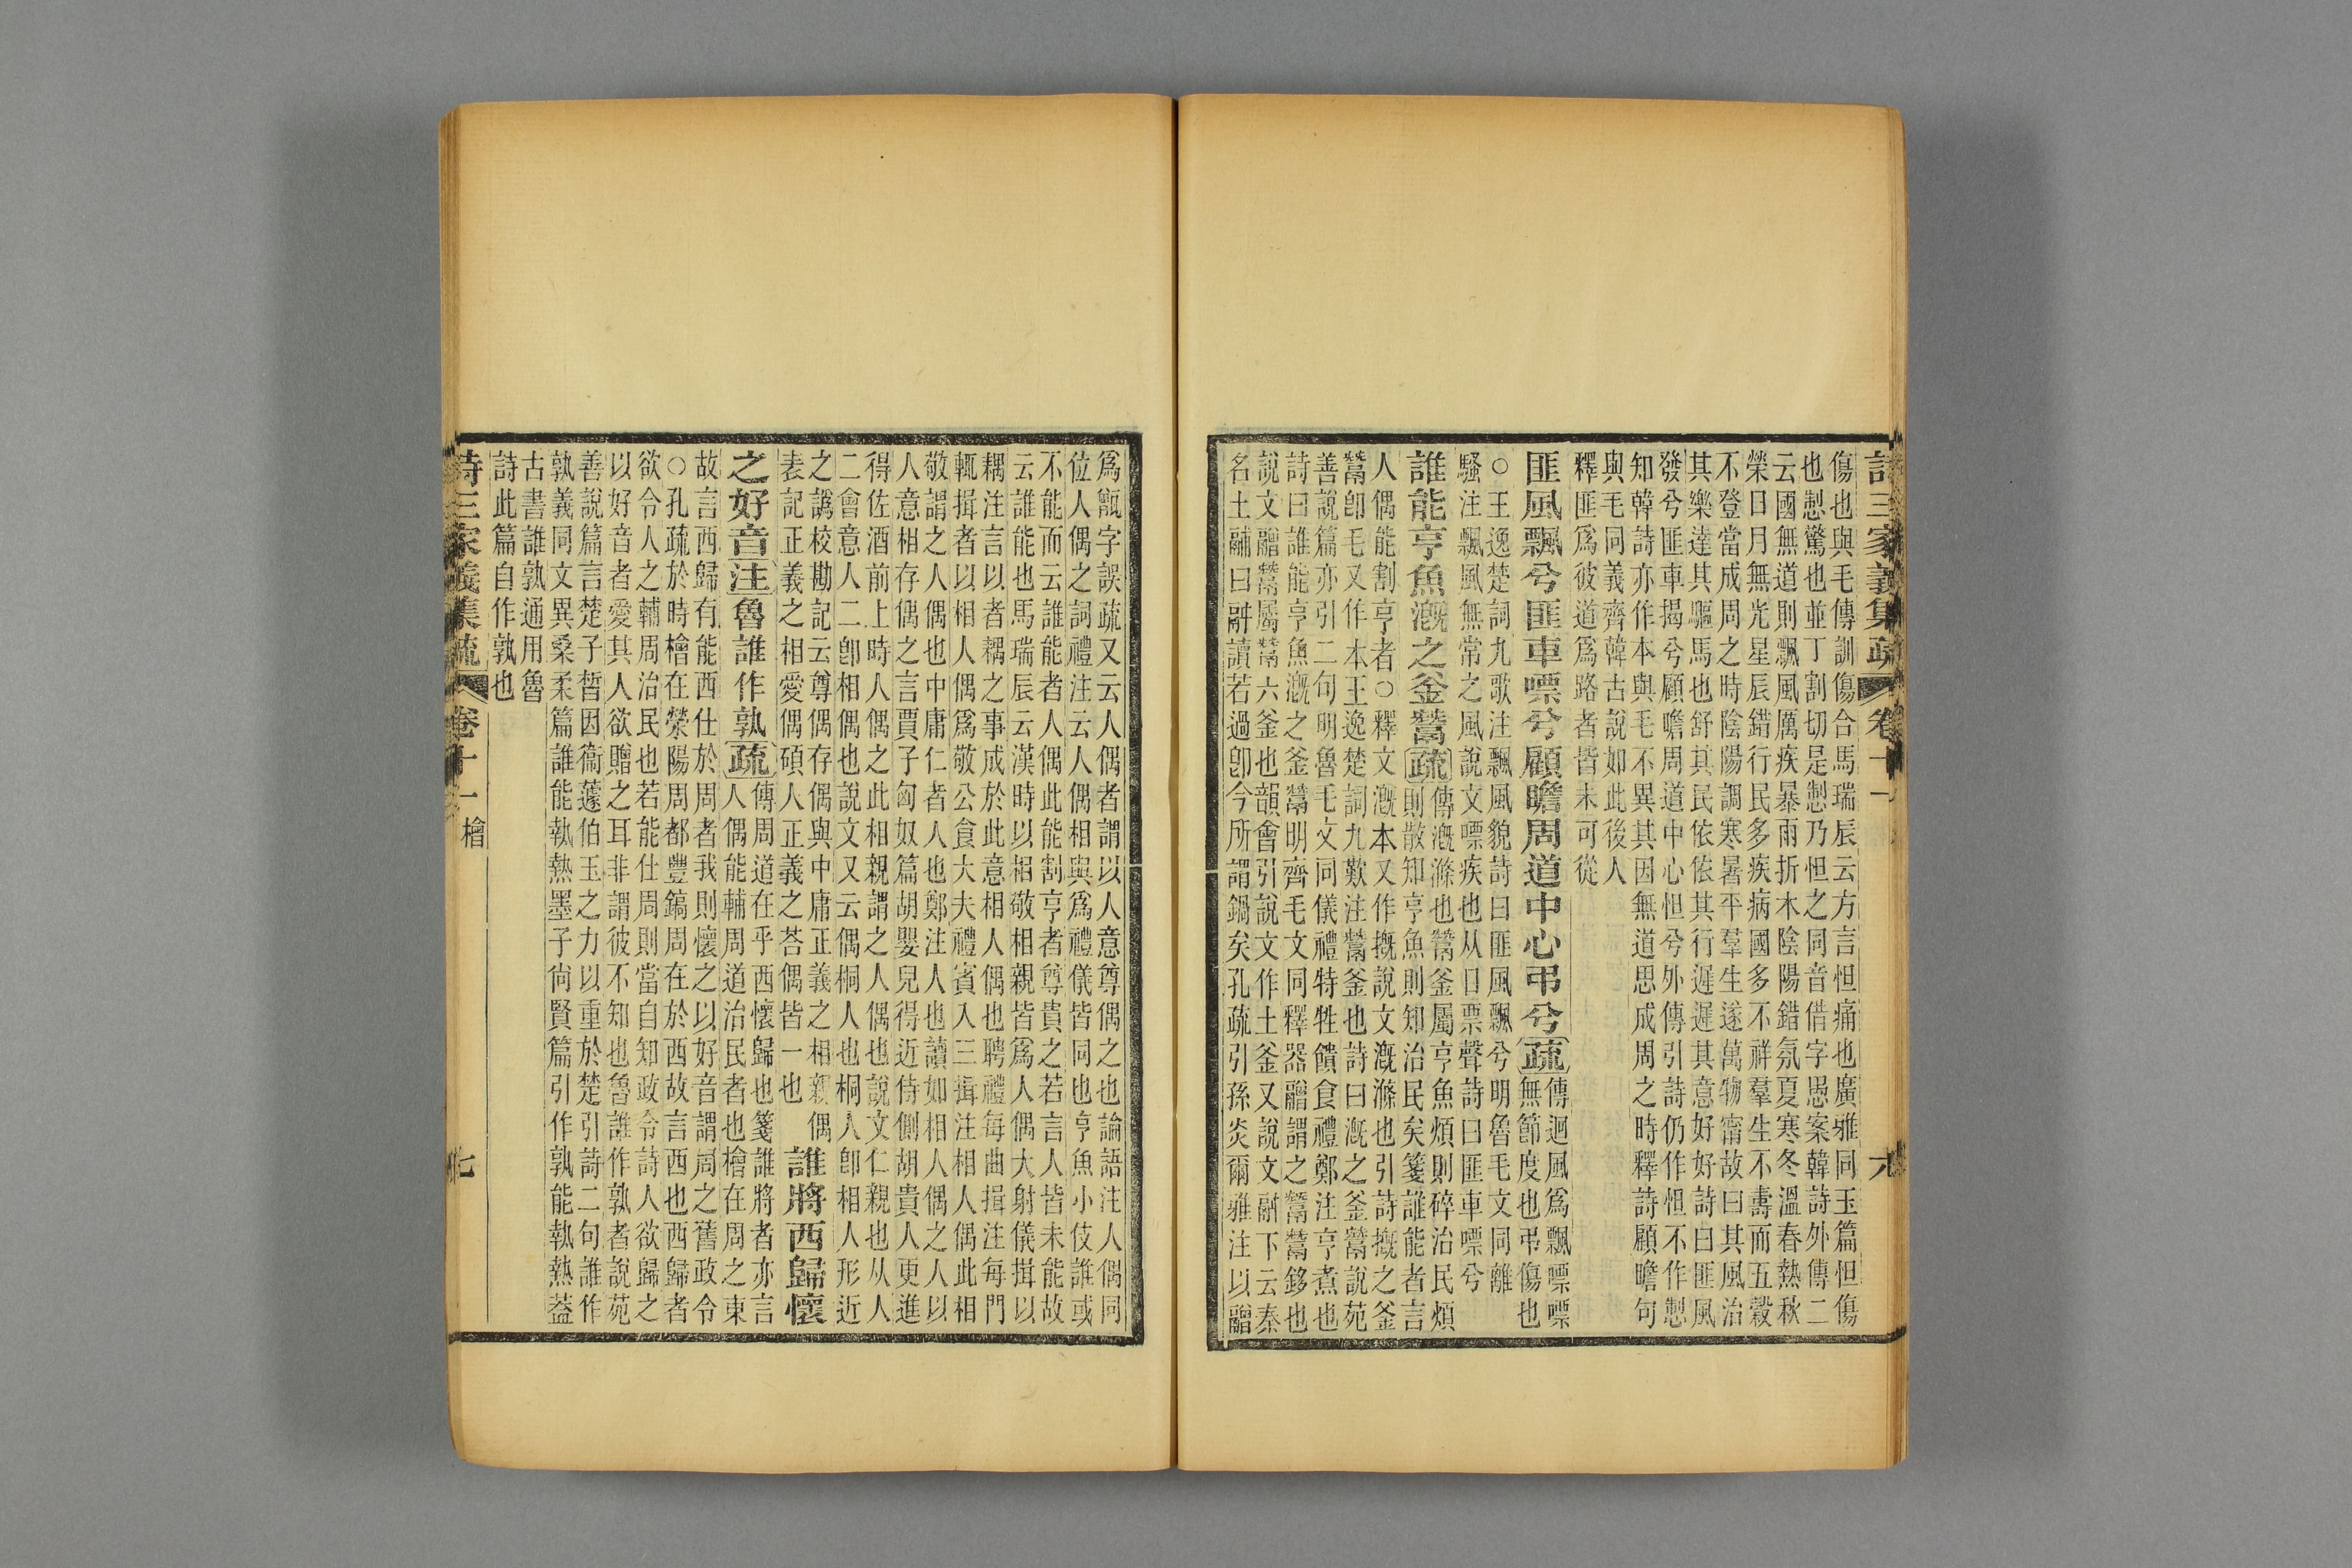 詩三家義集疏 卷十一 六
傷也與毛傳訓傷合馬瑞辰云方言怛痛也廣雅同玉篇怛傷
也㤠驚也並丁割切是㤠乃怛之同音借字愚案韓詩外傳二
云國無道則飄風厲疾暴雨折木陰陽錯氛夏寒冬溫春熱秋
榮日月無光星辰錯行民多疾病國多不祥羣生不壽而五穀
不登當成周之時陰陽調寒暑平羣生遂萬物甯故曰其風治
其樂達其驅馬也舒其民依依其行遲遲其意好好詩曰匪風
發兮匪車揭兮顧瞻周道中心怛兮外傳引詩仍作怛不作㤠
知韓詩亦作本與毛不異其因無道思成周之時釋詩顧瞻句
與毛同義齊韓古說如此後人
釋匪爲彼道爲路者皆未可從
匪風飄兮匪車嘌兮顧瞻周道中心弔兮疏傳迴風爲飄嘌嘌
無節度也弔傷也
○王逸楚詞九歌注飄風貌詩曰匪風飄兮明魯毛文同離
騷注飄風無常之風說文嘌疾也从口票聲詩曰匪車嘌兮
誰能亨魚溉之釜鬵疏傳溉滌也鬵釜屬亨魚煩則碎治民煩
則散知亨魚則知治民矣箋誰能者言
人偶能割亨者○釋文溉本又作摡說文溉滌也引詩摡之釜
鬵卽毛又作本王逸楚詞九歎注鬵釜也詩曰溉之釜鬵說苑
善說篇亦引二句明魯毛文同儀禮特牲饋食禮鄭注亨煮也
詩曰誰能亨魚溉之釜鬵明齊毛文同釋器䰝謂之鬵鬵鉹也
說文䰝鬵屬鬵六釜也韻會引說文作土釜又說文鬴下云秦
名土鬴曰䰙讀若過卽今所謂鍋矣孔疏引孫炎爾雅注以䰝
爲甑字誤疏又云人偶者謂以人意尊偶之也論語注人偶同
位人偶之詞禮注云人偶相與爲禮儀皆同也亨魚小伎誰或
不能而云誰能者人偶此能割亨者尊貴之若言人皆未能故
云誰能也馬瑞辰云漢時以相敬相親皆爲人偶大射儀揖以
耦注言以者耦之事成於此意相人偶也聘禮每曲揖注每門
輒揖者以相人偶爲敬公食大夫禮賓入三揖注相人偶此相
敬謂之人偶也中庸仁者人也鄭注人也讀如相人偶之人以
人意相存偶之言賈子匈奴篇胡嬰兒得近侍側胡貴人更進
得佐酒前上時人偶之此相親謂之人偶也說文仁親也从人
二會意人二卽相偶也說文又云偶桐人也桐人卽相人形近
之譌校勘記云尊偶存偶與中庸正義之相親偶
表記正義之相愛偶碩人正義之荅偶皆一也 誰將西歸懷
之好音注魯誰作孰疏傳周道在乎西懷歸也箋誰將者亦言
人偶能輔周道治民者也檜在周之東
故言西歸有能西仕於周者我則懷之以好音謂周之舊政令
○孔疏於時檜在滎陽周都豐鎬周在於西故言西也西歸者
欲令人之輔周治民也若能仕周則當自知政令詩人欲歸之
以好音者愛其人欲贈之耳非謂彼不知也魯誰作孰者說苑
善說篇言楚子晳因衞蘧伯玉之力以重於楚引詩二句誰作
孰義同文異桑柔篇誰能執熱墨子尙賢篇引作孰能執熱葢
古書誰孰通用魯
詩此篇自作孰也
詩三家義集疏 卷十一 檜 七